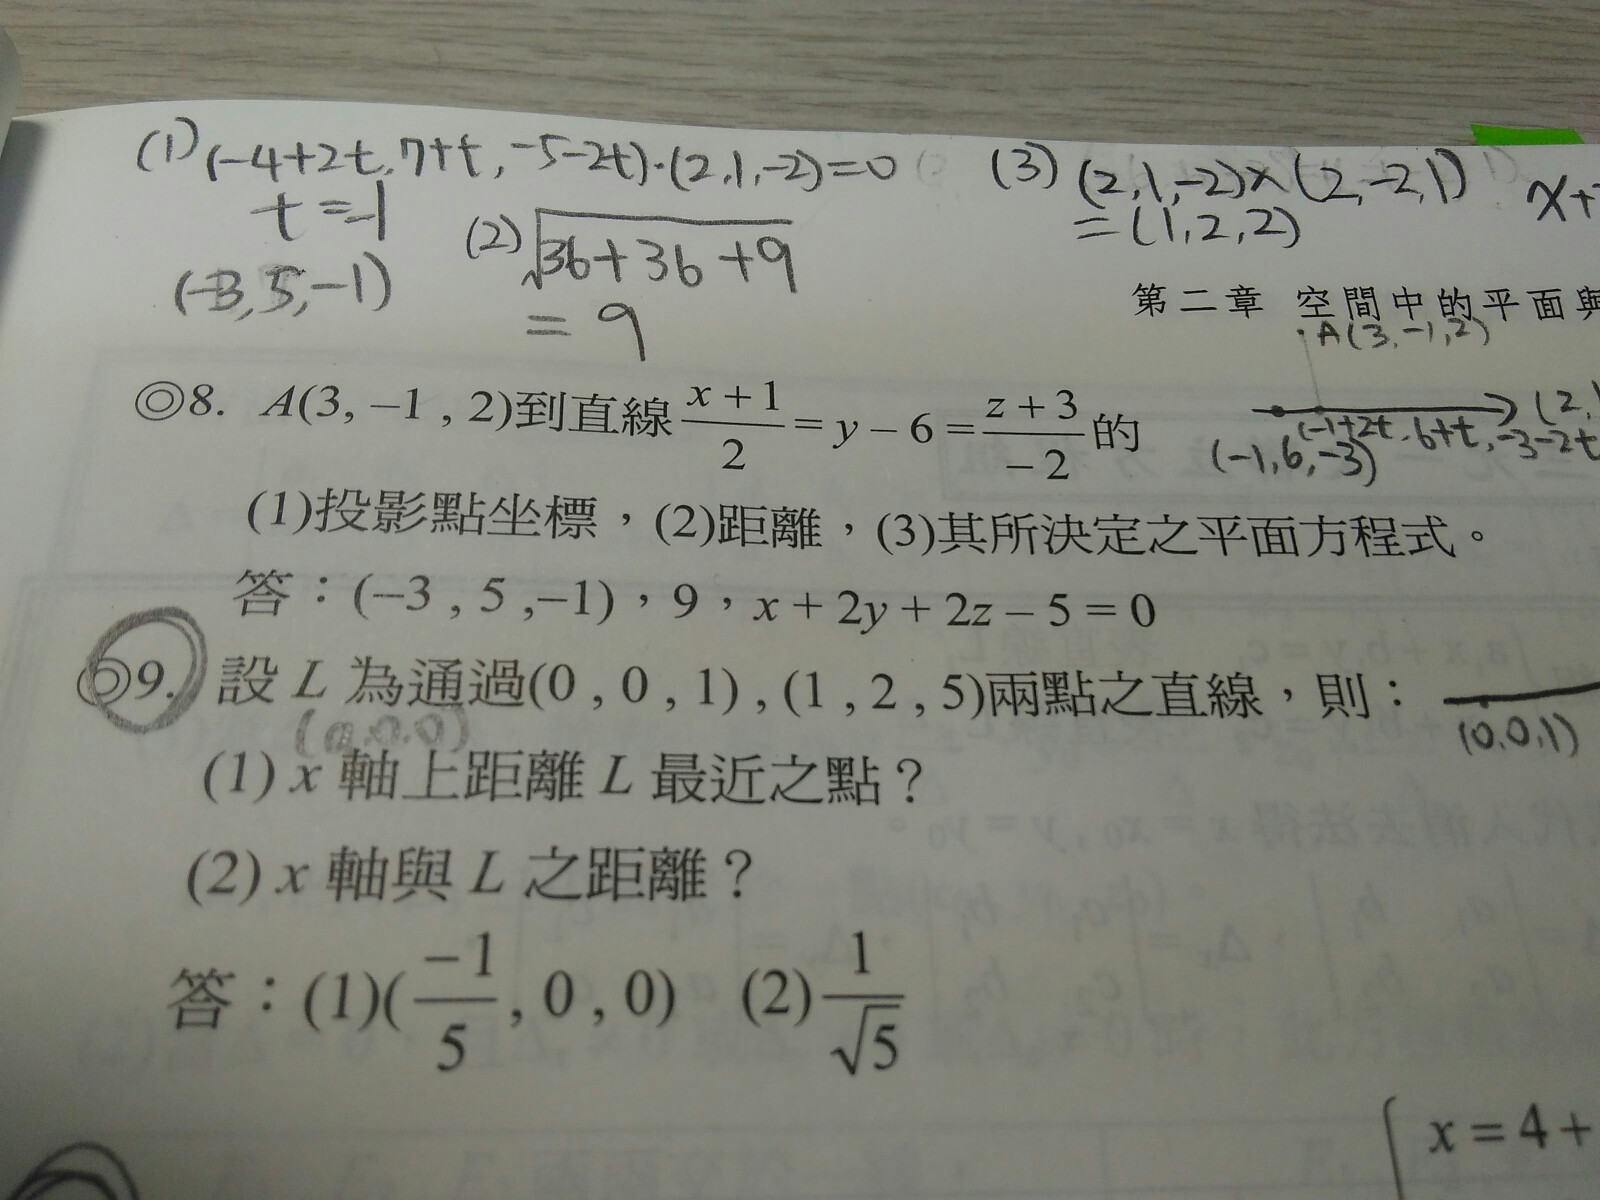 (1) (-4+2t, 7+t, -5-2t)·(2,1,-2)=0
t=-1
(-3,5,-1)
(2) √36+36+9
= 9
(3) (2,1,-2)×(2,-2,1)
=(1,2,2)
第二章 空間中的平面與
A(3,-1,2)
◎8. A(3, –1 , 2)到直線 (x + 1)/2 = y – 6 = (z + 3)/–2 的
(-1+2t, 6+t, -3-2t
(-1,6,-3)
(1)投影點坐標，(2)距離，(3)其所決定之平面方程式。
答：(–3 , 5 ,–1)，9，x + 2y + 2z – 5 = 0
◎9. 設 L 為通過(0 , 0 , 1) , (1 , 2 , 5)兩點之直線，則：
(0,0,1)
(a,0,0)
(1) x 軸上距離 L 最近之點？
(2) x 軸與 L 之距離？
答：(1)(–1/5 , 0 , 0) (2) 1/√5
x = 4 +